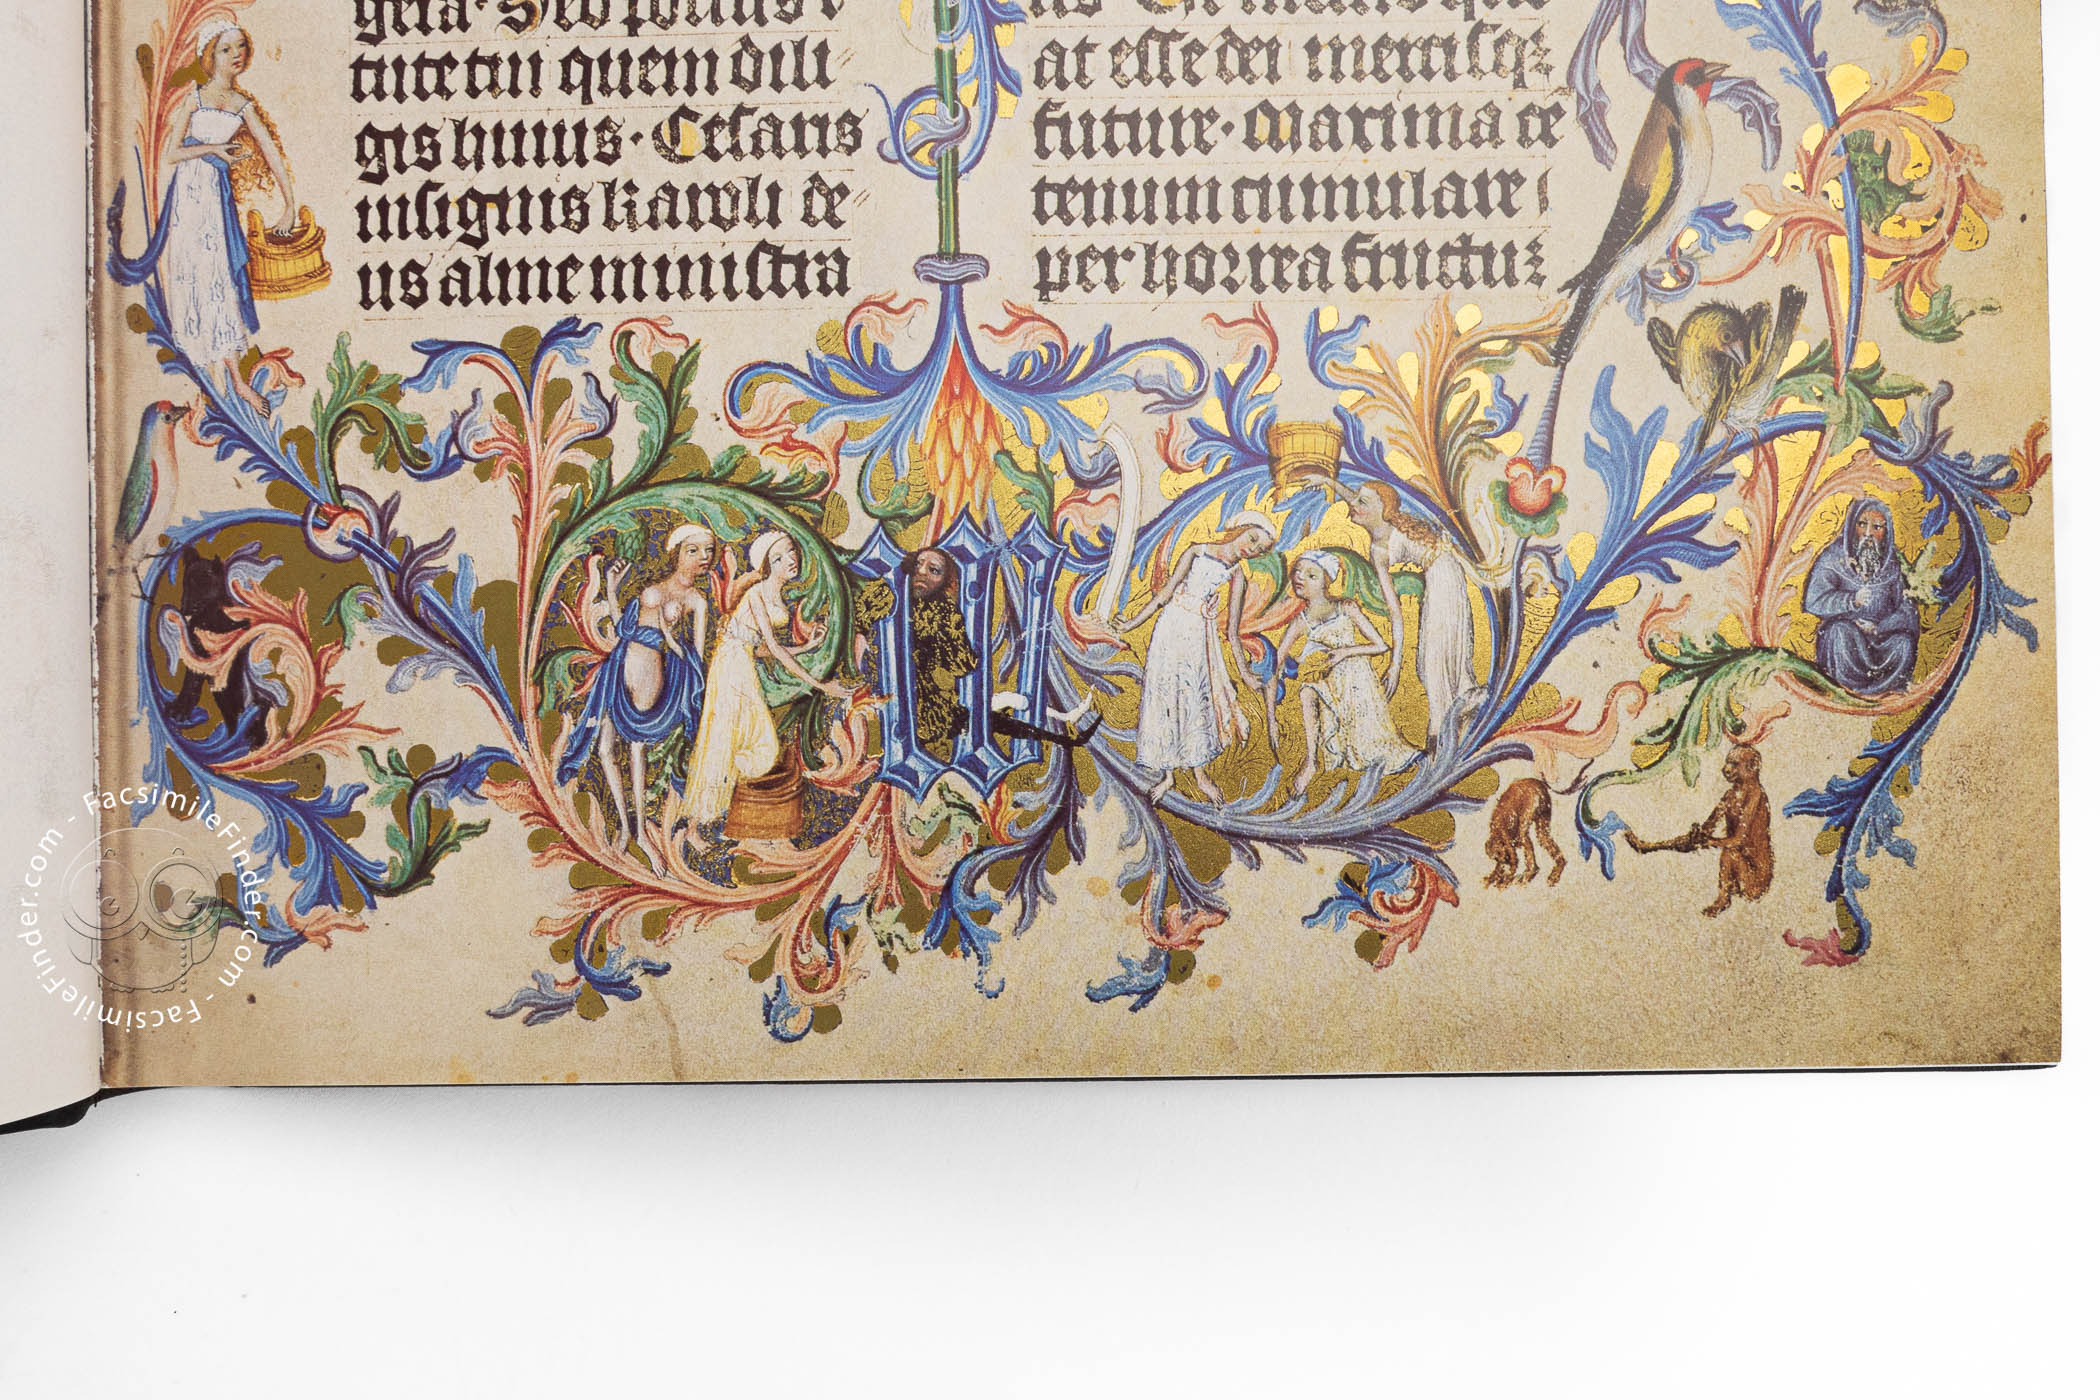 tute tui quem dili
gis huius. Cesaris
insignis karoli de
us alme ministra
at esse dei mercisqz
future. Maxima ce
tenum cumulare
per horrea fructuz
FacsimileFinder.com - FacsimileFinder.com -